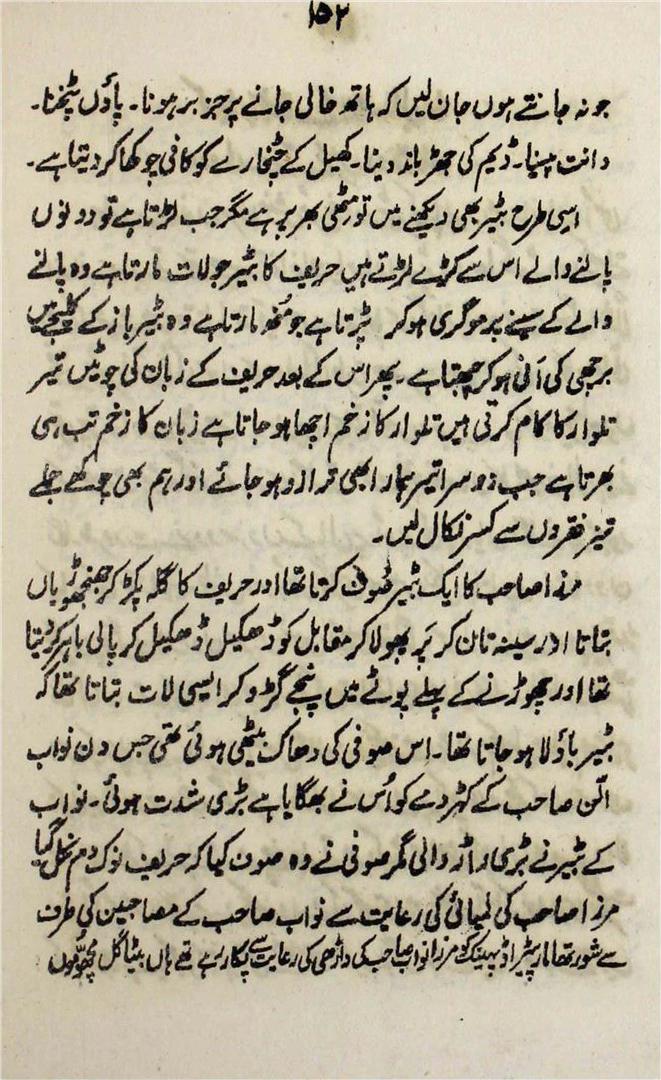 ۱۵۲
جو نہ جانتے ہوں جان لیں کہ ہاتھ خالی جانے پر جز بر ہونا۔ پاؤں پٹخنا۔
دانت پیسنا۔ ڈیم کی جھڑ باندھ دینا۔ کھیل کے چٹخارے کو کافی چوکھا کر دیتا ہے۔
اسی طرح بٹیر بھی دیکھنے میں تو مٹھی بھر پر ہے مگر جب لڑتا ہے تو دونوں
پالنے والے اس سے کڑے لڑتے ہیں حریف کا بٹیر جو لات مارتا ہے وہ پالنے
والے کے سینے پر موگری ہو کر پڑتا ہے جو منھ مارتا ہے وہ بٹیر باز کے کلیجے میں
برچھی کی اَنی ہو کر چبھتا ہے۔ پھر اس کے بعد حریف کے زبان کی چوٹیں تیر
تلوار کا کام کرتی ہیں تلوار کا زخم اچھا ہو جاتا ہے زبان کا زخم تب ہی
بھرتا ہے جب دوسرا تیر ہمارا بھی ترازو ہو جائے اور ہم بھی چوکھے چلے
تیز فقروں سے کسر نکال لیں۔
مرزا صاحب کا ایک بٹیر صوف کرتا تھا اور حریف کا گلہ پکڑ کر جھنجھوڑیاں
بتاتا اور سینہ تان کر پَر پھولا کر مقابل کو ڈھکیل ڈھکیل کر پالی باہر کر دیتا
تھا اور چھوڑنے کے پہلے پوٹے میں پنجے گڑو کر ایسی لات بتاتا تھا کہ
بٹیر باؤلا ہو جاتا تھا۔ اس صوفی کی دھاک بیٹھی ہوئی تھی جس دن نواب
اتّن صاحب کے کھردمے کو اُس نے بھگایا ہے بڑی شدت ہوئی۔ نواب
کے بٹیر نے بڑی مار ڈالی مگر صوفی نے وہ صون کیا کہ حریف نوک دم نکل گیا
مرزا صاحب کی لمبائی کی رعایت سے نواب صاحب کے مصاحبین کی طرف
سے شور تھا مار پیٹر اڈ پھینک کو مرزا نواب صاحب کی داڑھی کی رعایت سے پکار رہے تھے ہاں بیٹا گل مچھّوں